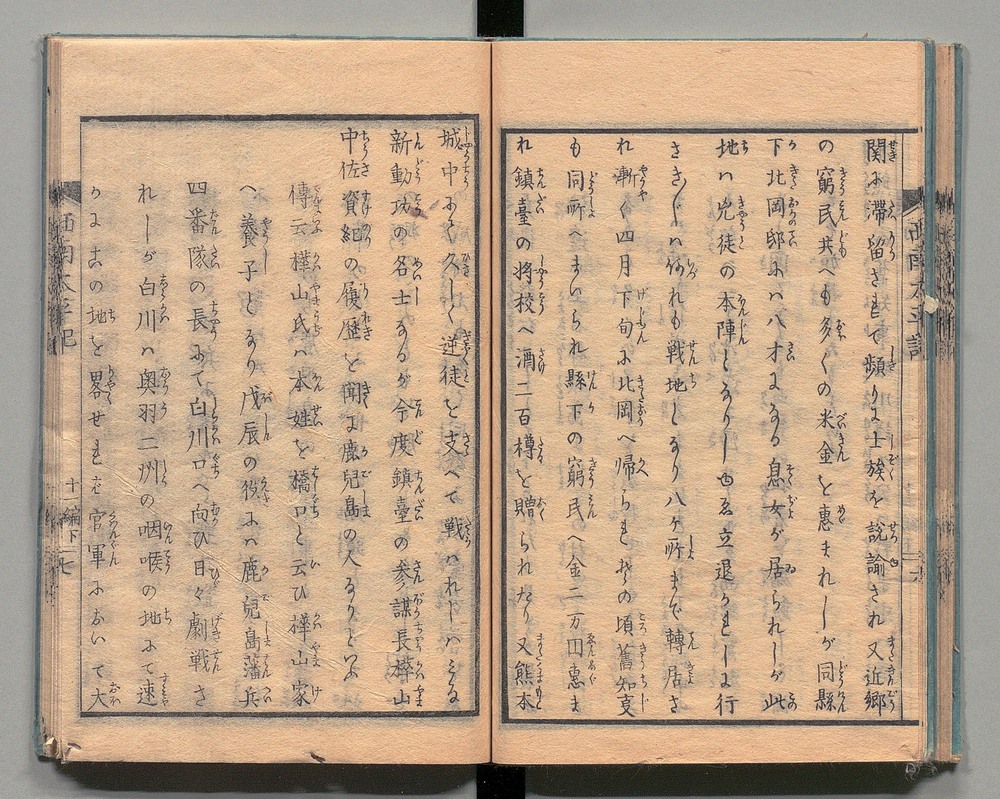 関に滞留されて頻りに士族を説諭され又近郷
の窮民共へも多くの米金を恵まれしが同縣
下北岡邸には八才になる息女が居られしが此
地は兇徒の本陣となりしゆゑ立退かれしに行
さき〴〵は何れも戦地となり八ケ所まで轉居さ
れ漸く四月下旬に北岡へ帰られ其頃舊知事
も同所へまいられ縣下の窮民へ金二万円恵ま
れ鎮臺の将校へ酒二百樽を贈られたり又熊本
城中にて久しく逆徒を支へて戦はれしは
新動功の名士なるが今度鎮臺の参謀長樺山
中佐資紀の履歴を聞に鹿児島の人なりといふ
傳云樺山氏は本姓を橋口と云ひ樺山家
へ養子となり戊辰の役には鹿児島藩兵
四番隊の長にて白川口へ向ひ日々劇戦さ
れしが白川は奥羽二州の咽喉の地にて速
かに此の地を畧せれば官軍において大
西南太平記
十一編下
七